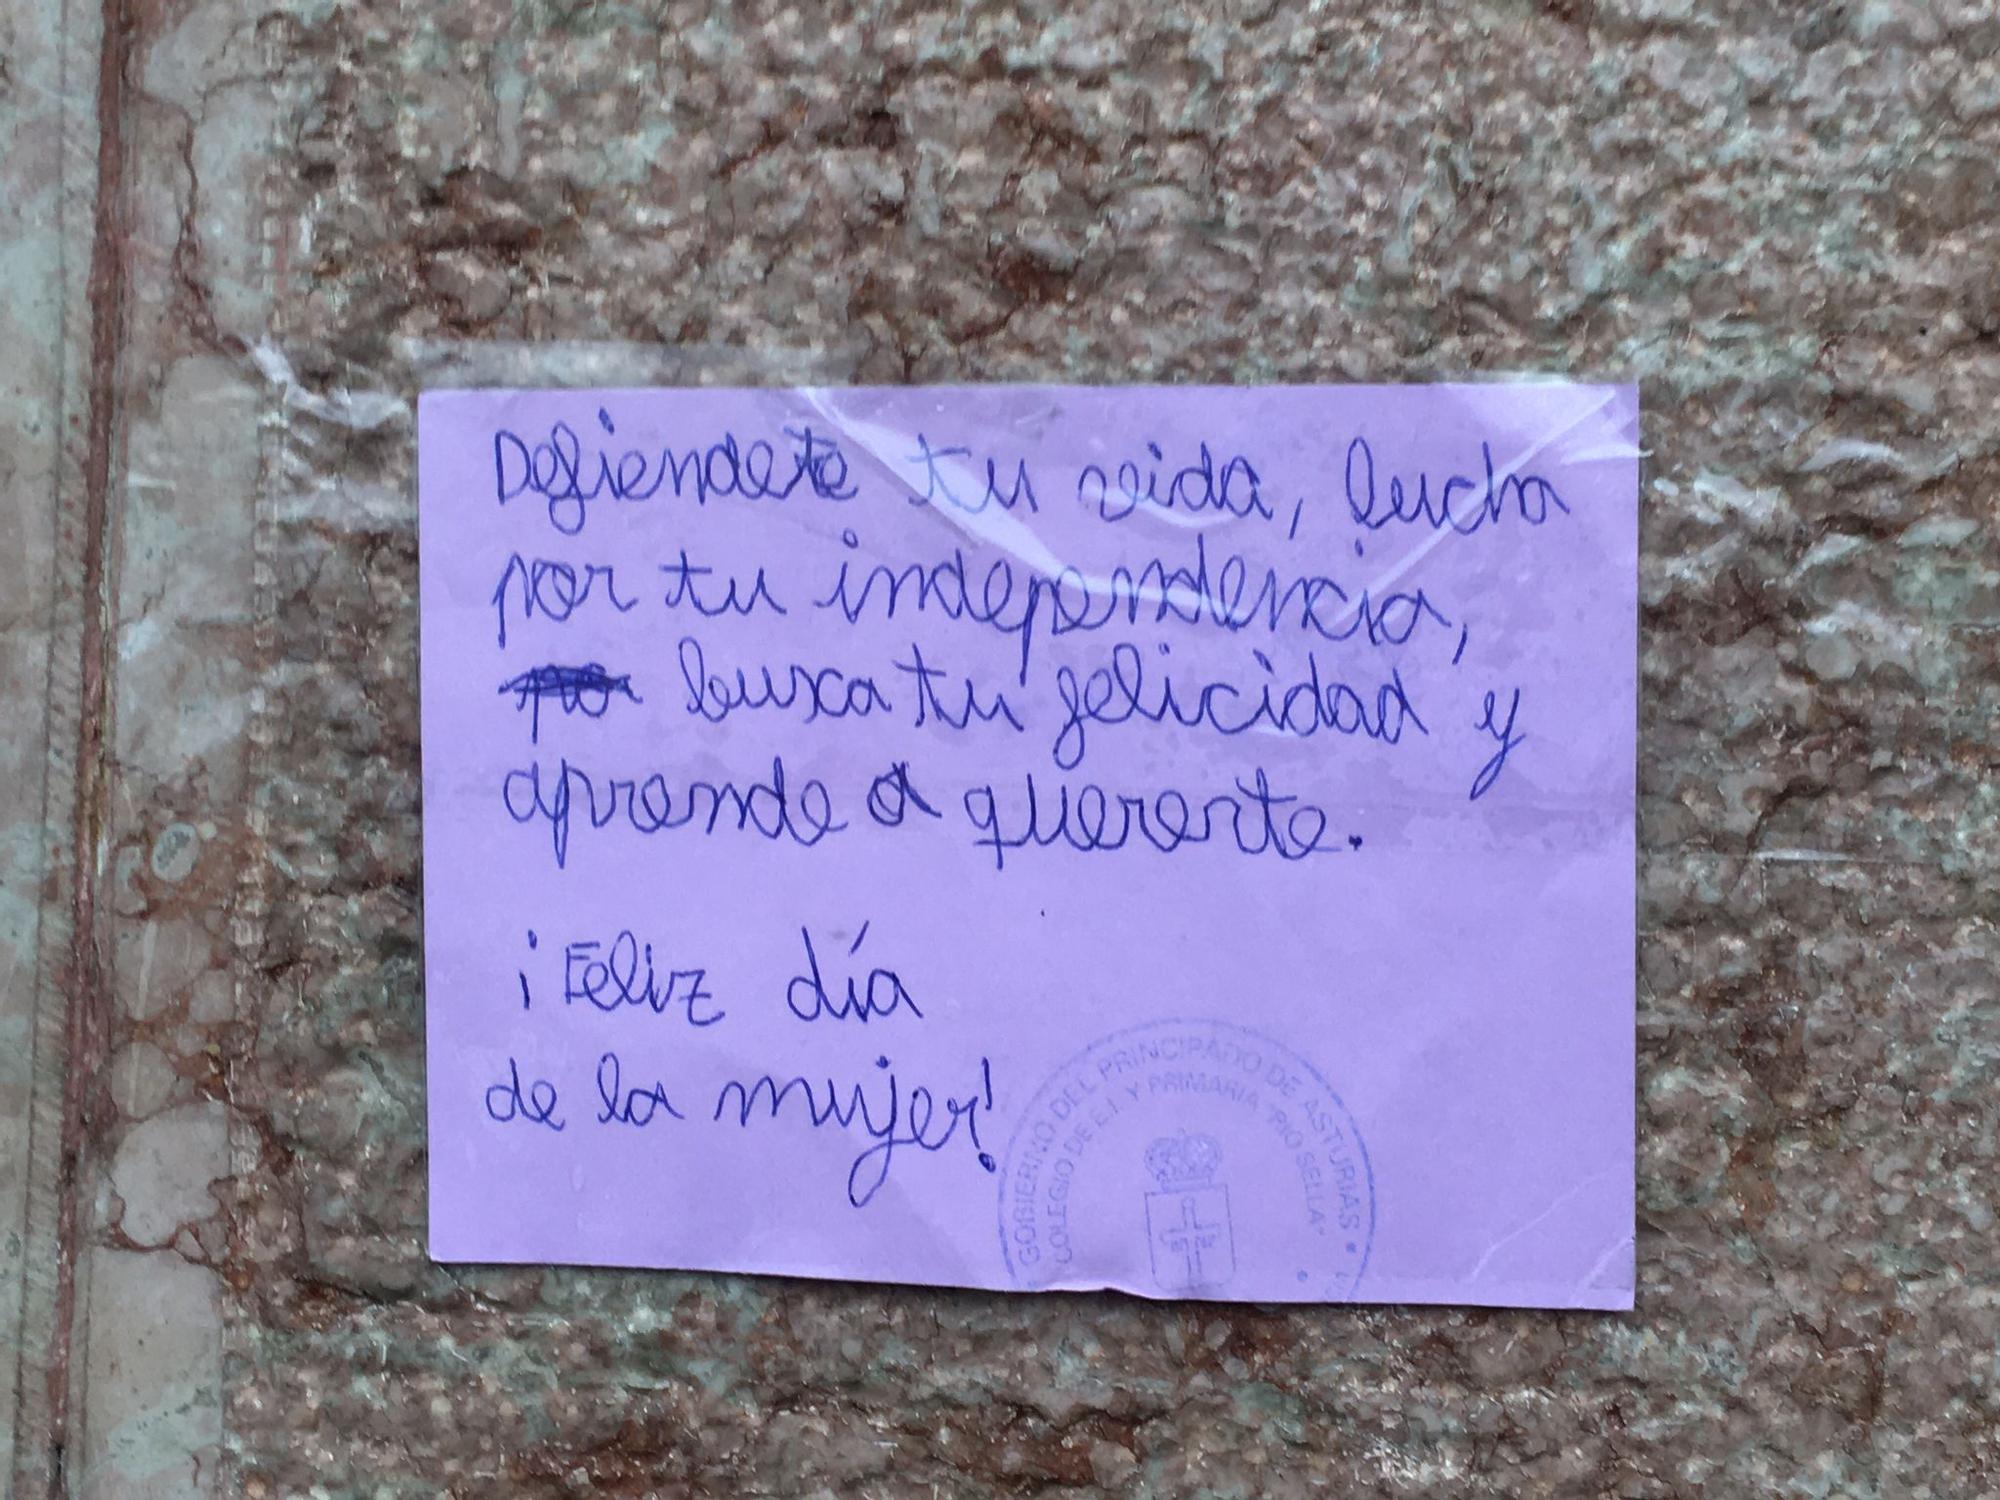 Defiendete tu vida, lucha
por tu independencia,
busca tu felicidad y
aprende a quererte.
¡Feliz día
de la mujer!
GOBIERNO DEL PRINCIPADO DE ASTURIAS
COLEGIO DE E.I. Y PRIMARIA "RIO SELLA"